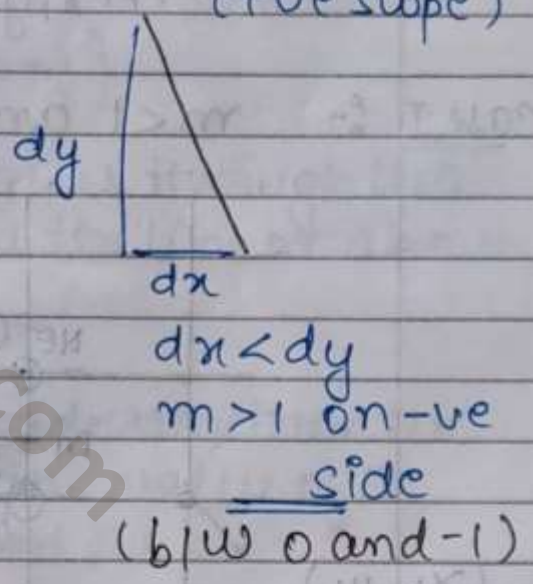 (+ve slope)
dy
dx
dx<dy
m>1 on -ve
side
(b/w 0 and -1)
com